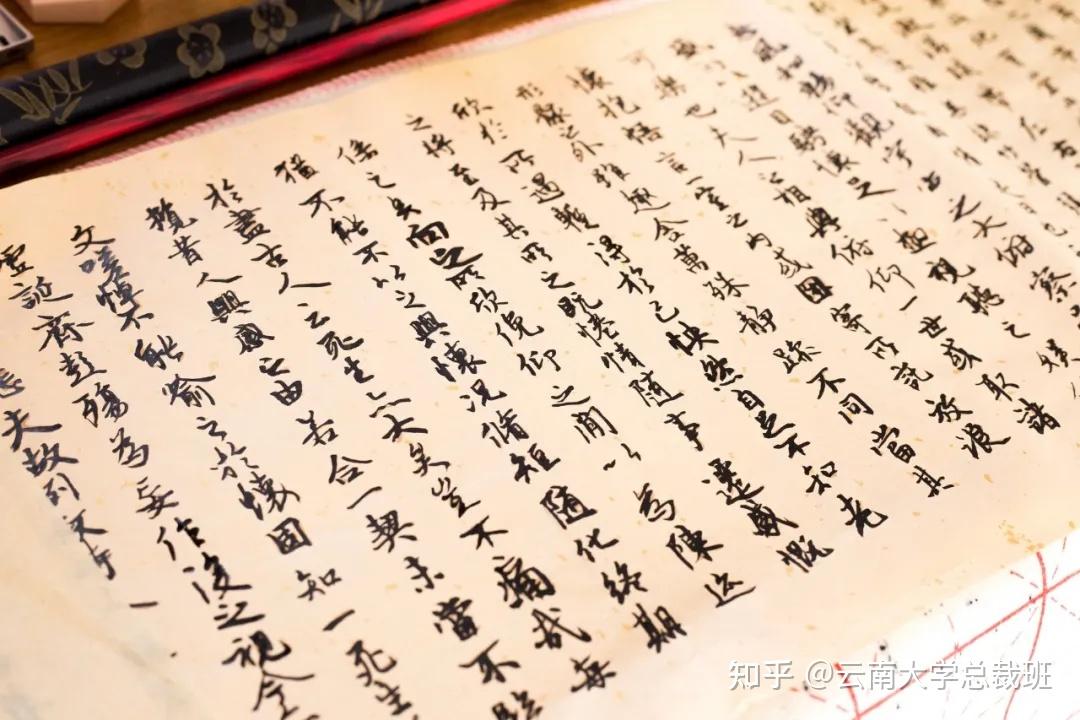 風和暢仰觀宇宙之大俯察
盛所以遊目騁懷足以極視聽之娛
可樂也夫人之相與俯仰一世或取諸
懷抱悟言一室之內或因寄所託放浪
形骸之外雖趣舍萬殊靜躁不同當其
欣於所遇暫得於己快然自足不知老
之將至及其所之既惓情隨事遷感慨
係之矣向之所欣俛仰之間以為陳迹
猶不能不以之興懷況脩短隨化終期
於盡古人云死生亦大矣豈不痛哉每
攬昔人興感之由若合一契未嘗不臨
文嗟悼不能喻之於懷固知一死生
虛誕齊彭殤為妄作後之視今
悲夫故列敘時
知乎 @云南大学总裁班